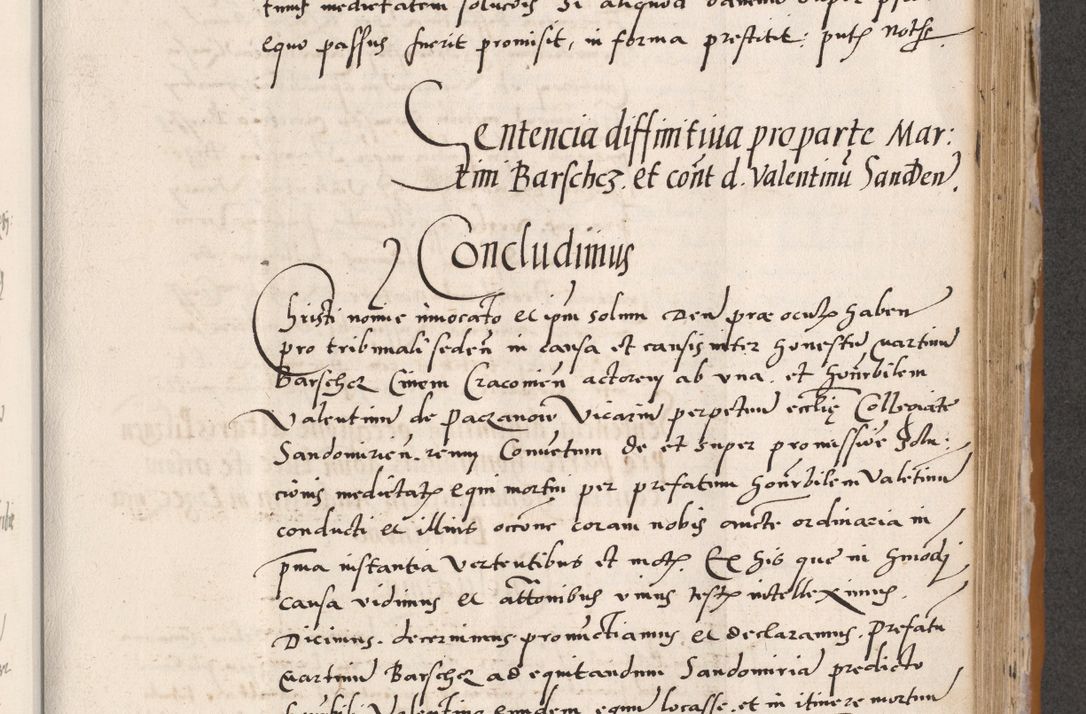 equo passus fuerit promisit, in forma prestitit: put₎ noths
Sentencia diffinitiua pro parte Mar:
tini Barschcz. et cont d. Valentinũ Sanden.
Concludimus
Christi nomine inuocato et ipm solum Deũ præ oculꝭ haben
pro tribunali seden̄ in causa et causis inter Honestũ Martinũ
Barschcz Ciuem Cracouien̄ actorem ab vna. et honrbilem
Valentinum de Paczanow Vicariũ perpetuũ eccłię Collegiate
Sandomirien. reum Conuentum de et super promissione Solu:
cionis medietatꝭ equi mortui per prefatum honrbilem Valētinũ
conducti et illius occone coram nobis aucte ordinaria in
pma instantia vertentibus et motꝭ. Ex his que in hmodi
causa vidimus et attonibus vnius testꝭ intelleximus.
Dicimus. decernimus pronunctiamus et declaramus. Prefatũ
Martinum Barschcz ad equitandum Sandomiriã predicto
honrbili Valentino eundem equum locasse. et in itinere mortuũ